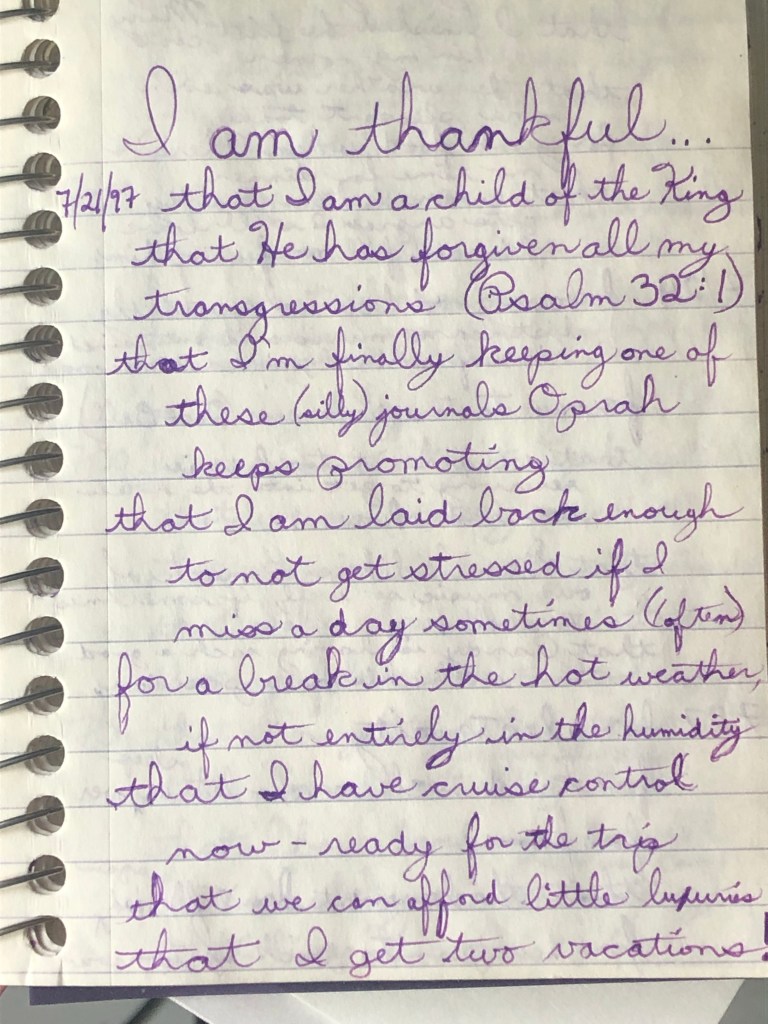 I am thankful...
7/21/97 that I am a child of the King
that He has forgiven all my
transgressions (Psalm 32:1)
that I'm finally keeping one of
these (silly) journals Oprah
keeps promoting
that I am laid back enough
to not get stressed if I
miss a day sometimes (often)
for a break in the hot weather,
if not entirely in the humidity
that I have cruise control
now - ready for the trip
that we can afford little luxuries
that I get two vacations!